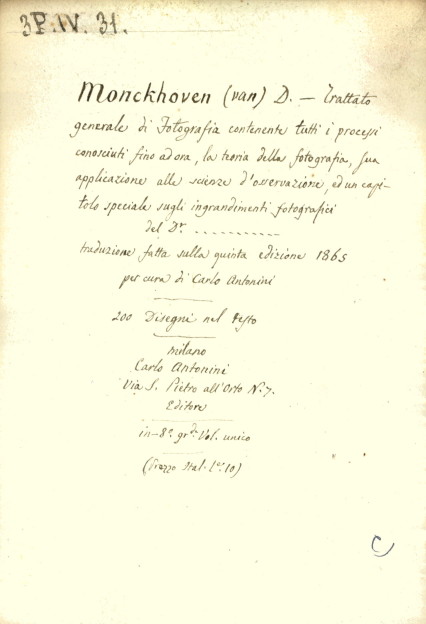 3P. IV. 31.
Monckhoven (van) D. — Trattato
generale di Fotografia contenente tutti i processi
conosciuti fino ad ora, la teoria della fotografia, sua
applicazione alle scienze d'osservazione, ed un capi-
tolo speciale sugli ingrandimenti fotografici
del Dr. ...........
traduzione fatta sulla quinta edizione 1865
per cura di Carlo Antonini
200 Disegni nel testo
Milano
Carlo Antonini
Via S. Pietro all'Orto N. 7.
Editore
in-8° gr.de Vol. unico
(Prezzo Ital. L.re 10)
C